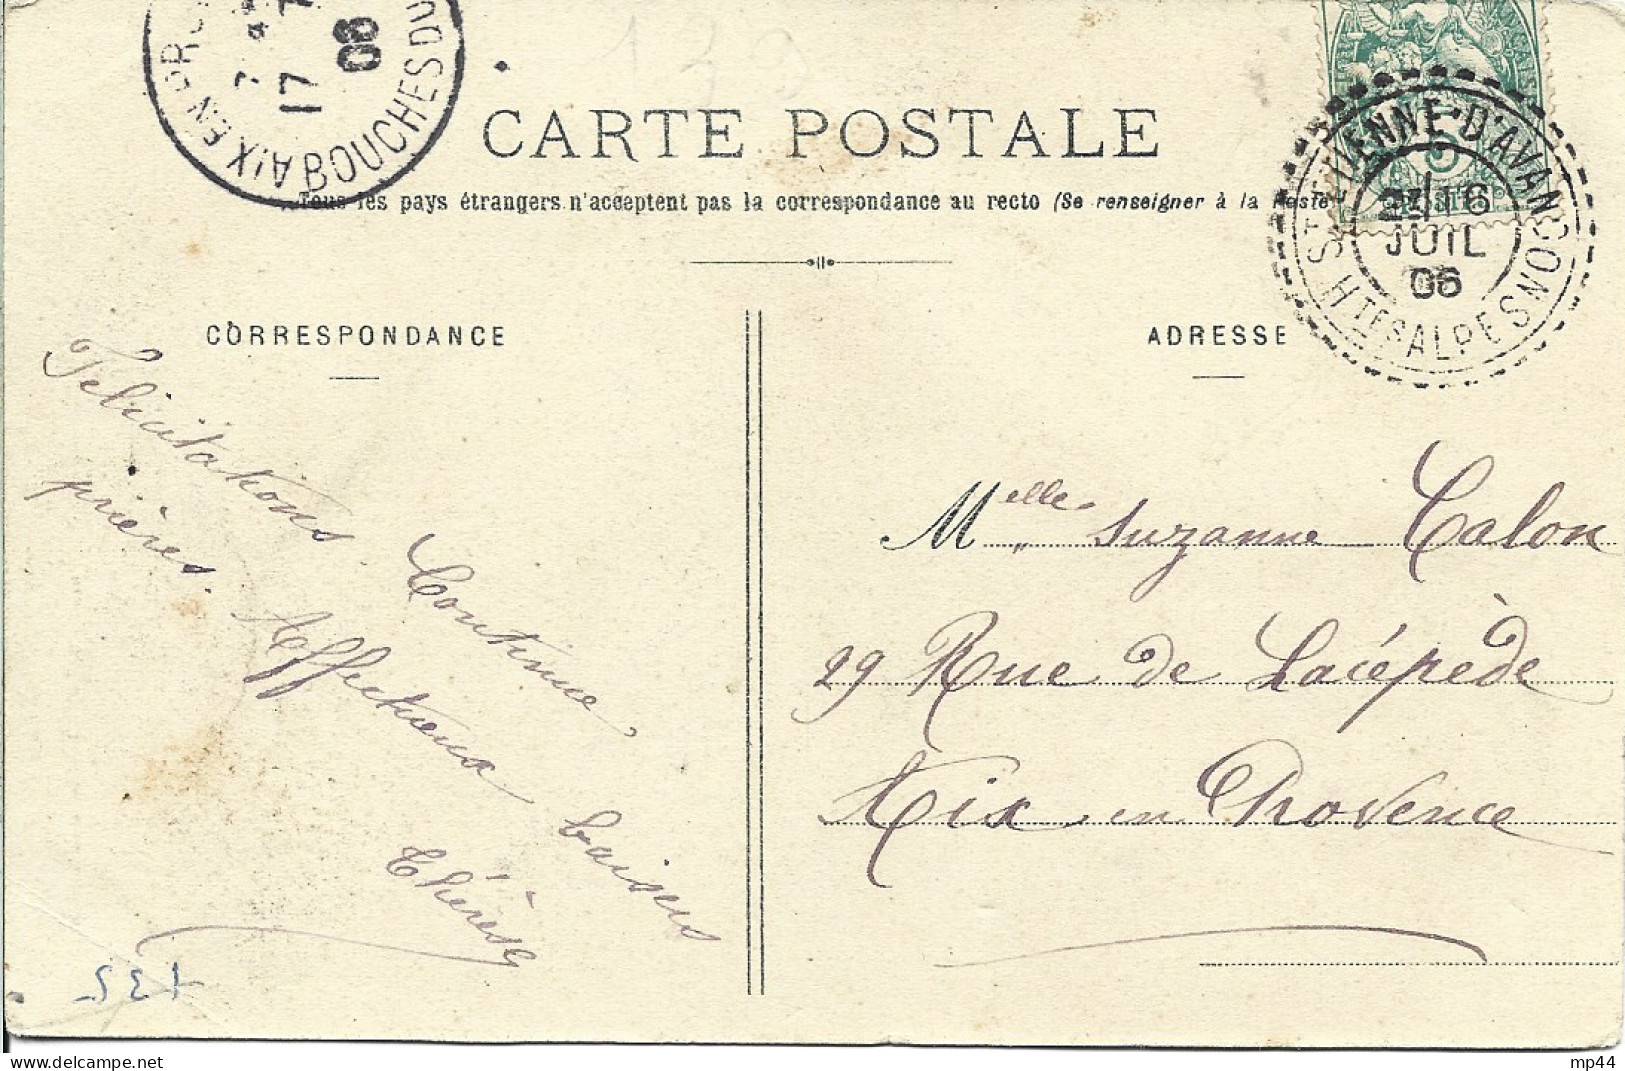 AIX EN PRO
7
17 7
06
BOUCHES DU
CARTE POSTALE
Tous les pays étrangers n'acceptent pas la correspondance au recto (Se renseigner à la Poste
ST ETIENNE-D'AVANÇONS
16
JUIL
06
HTES ALPES
CORRESPONDANCE
ADRESSE
Félicitations. Continue
prières. Affectueux baisers
Thérèse
Melle Suzanne Calon
29 Rue de Lacépède
Aix en Provence
mp44